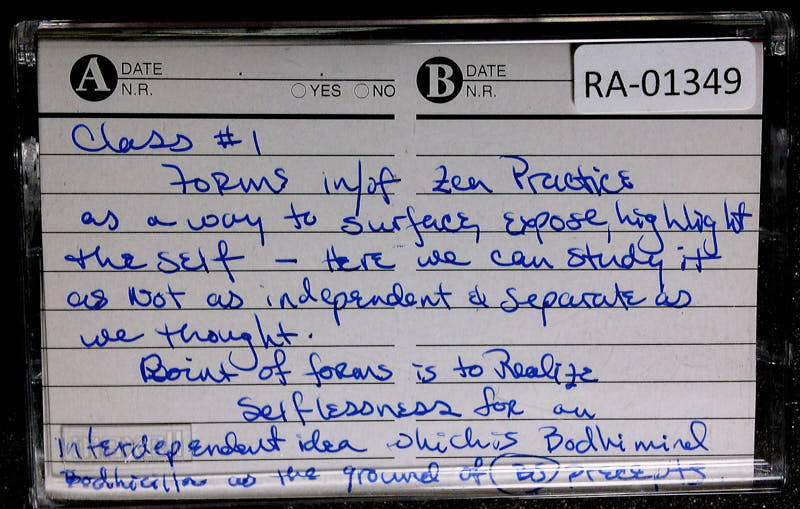 A DATE B DATE RA-01349
N.R. YES NO N.R.
Class #1
Forms in/of Zen Practice
as a way to surface, expose, highlight
the self – Here we can study it
as Not as independent & separate as
we thought.
Point of forms is to Realize
Selflessness for an
interdependent idea which is Bodhimind
as the ground of precepts.